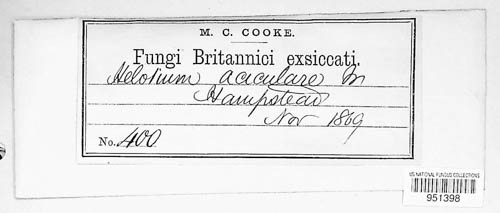 M. C. COOKE.
Fungi Britannici exsiccati.
Helotium aciculare
Hampstead
Nov 1869
No. 400
US NATIONAL FUNGUS COLLECTIONS
951398